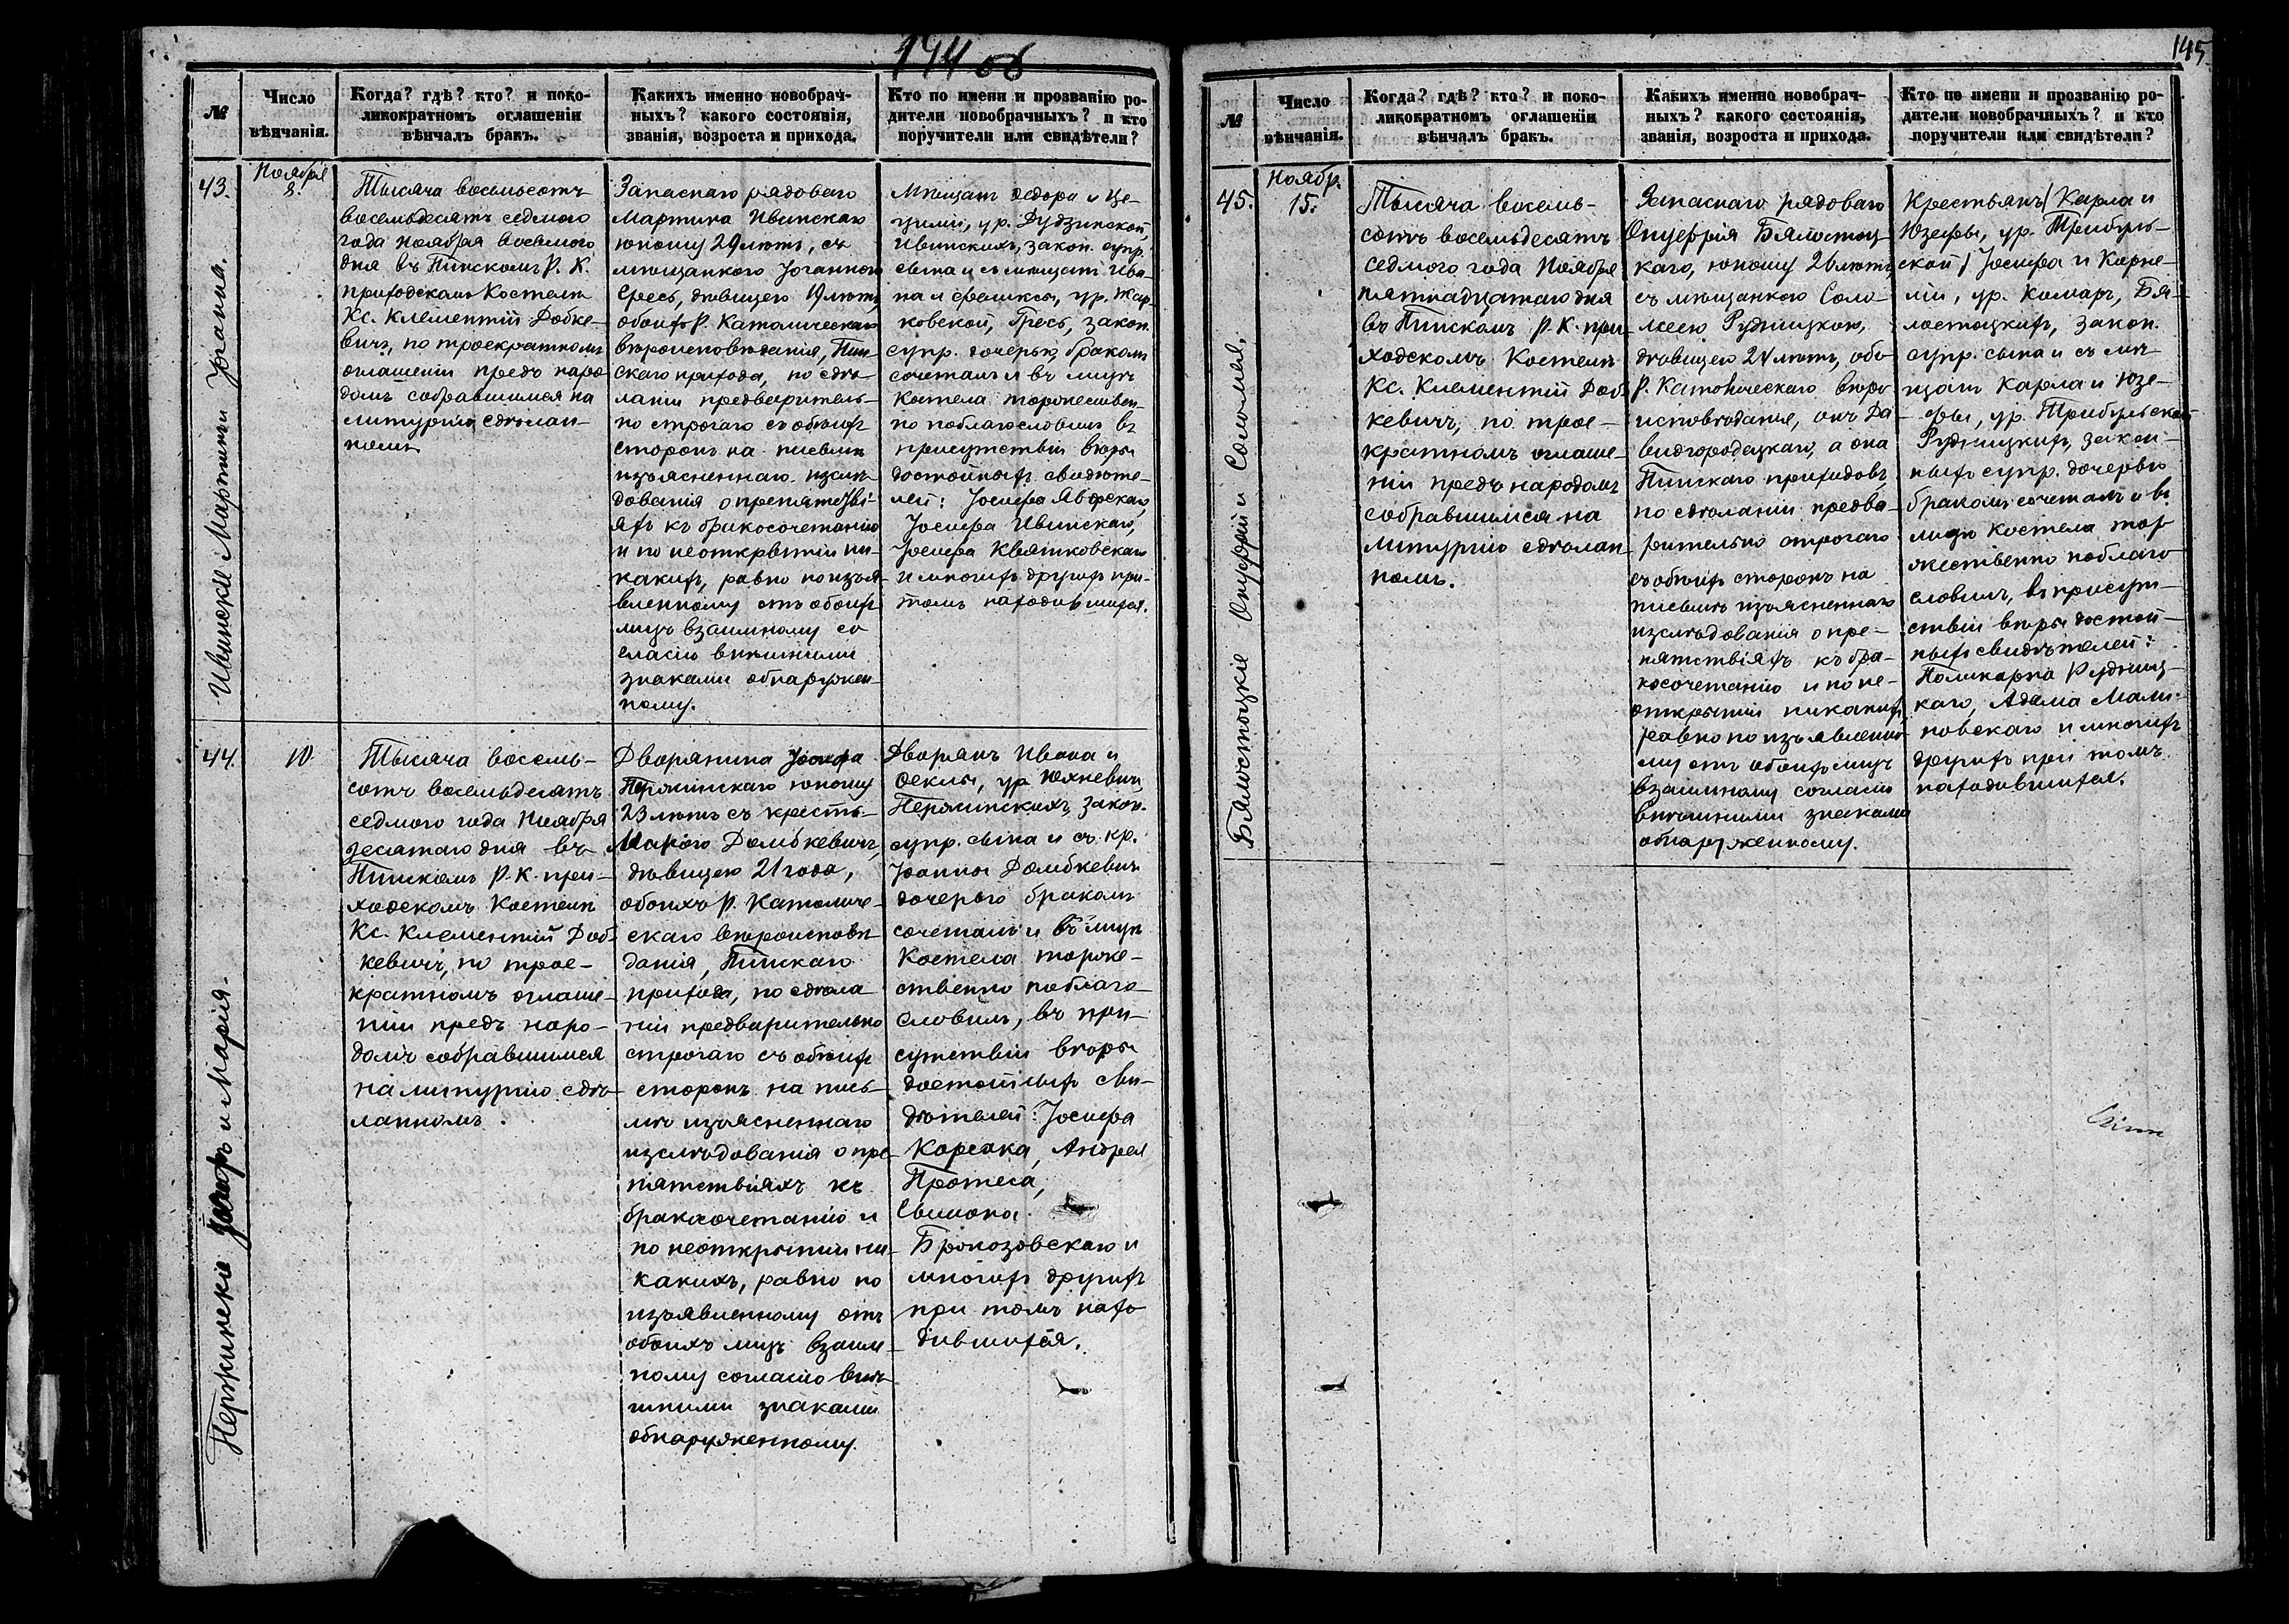 144 об
№
Число
вѣнчанія.
Когда? гдѣ? кто? и поко-
ликократномъ оглашеніи
вѣнчалъ бракъ.
Какихъ именно новобрач-
ныхъ? какого состоянія,
званія, возроста и прихода.
Кто по имени и прозванію ро-
дители новобрачныхъ? и кто
поручители или свидѣтели?
43.
Ивинскіе Мартинъ и Іоанна.
Ноября
8.
Тысяча восемьсотъ
восемьдесятъ седмого
года Ноября восьмого
дня въ Пинскомъ Р. К.
приходскомъ Костелѣ
Кс. Клементій Добке-
вичъ, по троекратномъ
оглашеніи предъ наро
домъ собравшимся на
литургію сдѣлан-
номъ
Запаснаго рядоваго
Мартина Ивинскаго
юношу 29 лѣтъ, съ
мѣщанкою Іоганною
Гресь, дѣвицею 19 лѣтъ,
обоихъ Р. Католическаго
вѣроисповѣданія, Пин
скаго прихода, по сдѣ-
ланіи предваритель-
но строгаго съ обѣихъ
сторонъ на письмѣ
изъясненнаго изслѣ-
дованія о препятстві-
яхъ къ бракосочетанію
и по неоткрытіи ни-
какихъ, равно по изъя-
вленному отъ обоихъ
лицъ взаимному со
гласію внѣшними
знаками обнаружен-
ному.
Мѣщанъ Ѳедора и Це-
циліи, ур. Дудзинской,
Ивинскихъ, закон. супр.
сына и съ мѣщанъ Ива-
на и Феликсы, ур. Жар-
ковской, Гресь, закон.
супр. дочерью, бракомъ
сочеталъ и въ лицѣ
Костела торжествен-
но поблагословилъ въ
присутствіи вѣры
достойныхъ свидѣте-
лей: Іосифа Яворскаго,
Іосифа Ивинскаго,
Іосифа Квятковскаго
и многихъ другихъ при
томъ находившихся.
44.
Пержинскіе и Марія.
10
Тысяча восемь-
сотъ восемьдесятъ
седмого года Ноября
десятаго дня въ
Пинскомъ Р. К. при-
ходскомъ Костелѣ
Кс. Клементій Доб-
кевичъ, по трое-
кратномъ оглаше-
ніи предъ наро-
домъ собравшимся
на литургію сдѣ-
ланномъ.
Дворянина Іосифа
Пержинскаго юношу
23 лѣтъ съ кресть.
Маріею Домбкевичъ,
дѣвицею 21 года,
обоихъ Р. Католиче-
скаго вѣроисповѣ
данія, Пинскаго
прихода, по сдѣла
ніи предварительно
строгаго съ обѣихъ
сторонъ на пись-
мѣ изъясненнаго
изслѣдованія о пре-
пятствіяхъ къ
бракосочетанію и
по неоткрытіи ни-
какихъ, равно по
изъявленному отъ
обоихъ лицъ взаим-
ному согласію внѣ-
шними знаками
обнаруженному.
Дворянъ Ивана и
Ѳеклы, ур. Юхневичъ,
Пержинскихъ, закон.
супр. сына и съ кр.
Іоанны Домбкевичъ
дочерью бракомъ
сочеталъ и въ лицѣ
Костела торже-
ственно поблаго-
словилъ, въ при-
сутствіи вѣры
достойныхъ сви-
дѣтелей: Іосифа
Корсака, Андрея
Протеса,
Симона
Бронозовскаго и
многихъ другихъ
при томъ нахо-
дившихся.
145
№
Число
вѣнчанія.
Когда? гдѣ? кто? и поко-
ликократномъ оглашеніи
вѣнчалъ бракъ.
Какихъ именно новобрач-
ныхъ? какого состоянія,
званія, возроста и прихода.
Кто по имени и прозванію ро-
дители новобрачныхъ? и кто
поручители или свидѣтели?
45.
Бялостоцкіе Онуфрій и Соломея.
Ноябр.
15.
Тысяча восемь-
сотъ восемьдесятъ
седмого года Ноября
пятнадцатаго дня
въ Пинскомъ Р. К. при-
ходскомъ Костелѣ
Кс. Клементій Доб-
кевичъ, по трое-
кратномъ оглаше-
ніи предъ народомъ
собравшимся на
литургію сдѣлан-
номъ.
Запаснаго рядоваго
Онуфрія Бялостоц-
каго, юношу 26 лѣтъ,
съ мѣщанкою Соло-
меею Рудницкою,
дѣвицею 24 лѣтъ, обо
Р. Католическаго вѣро
исповѣданія, онъ Да-
видгородецкаго, а она
Пинскаго приходовъ,
по сдѣланіи предва-
рительно строгаго
съ обѣихъ сторонъ на
письмѣ изъясненнаго
изслѣдованія о пре-
пятствіяхъ къ бра-
косочетанію и по не-
открытіи никакихъ,
равно по изъявленно-
му отъ обоихъ лицъ
взаимному согласію
внѣшними знаками
обнаруженному.
Крестьянъ/Карла и
Юзефы, ур. Трибуль-
ской/Іосифа и Корне-
ліи, ур. Комаръ, Бя-
лостоцкихъ, закон.
супр. сына и съ мѣ-
щанъ Карла и Юзе-
фы, ур. Трибульской
Рудницкихъ, закон-
ныхъ супр. дочерью
бракомъ сочеталъ и въ
лицѣ Костела тор-
жественно поблаго
словилъ, въ присут-
ствіи вѣры достой-
ныхъ свидѣтелей:
Поликарпа Рудниц-
каго, Адама Мали-
новскаго и многихъ
другихъ при томъ
находившихся.